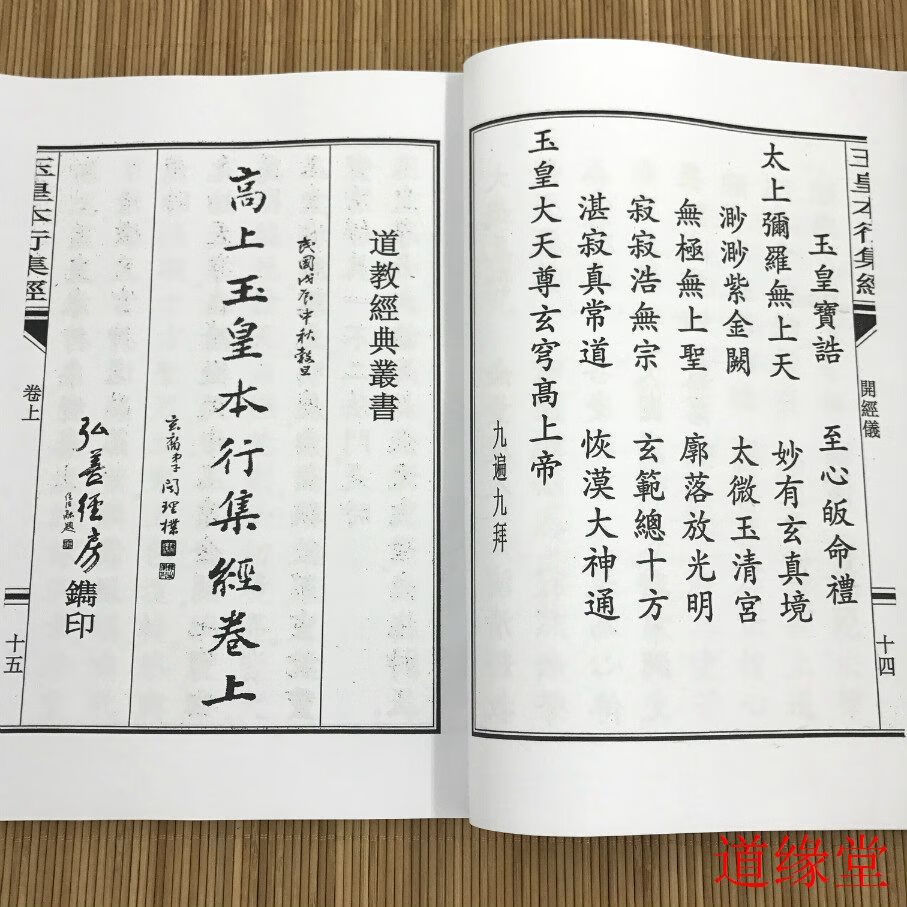 玉皇本行集經
開經儀
十四
玉皇寶誥 至心皈命禮
太上彌羅無上天 妙有玄真境
渺渺紫金闕 太微玉清宮
無極無上聖 廓落放光明
寂寂浩無宗 玄範總十方
湛寂真常道 恢漠大神通
玉皇大天尊玄穹高上帝
九遍九拜
道教經典叢書
民國戊辰中秋穀旦
高上玉皇本行集經卷上
玄裔弟子閔理樸
弘善經房鐫印
玉皇本行集經
卷上
十五
道缘堂